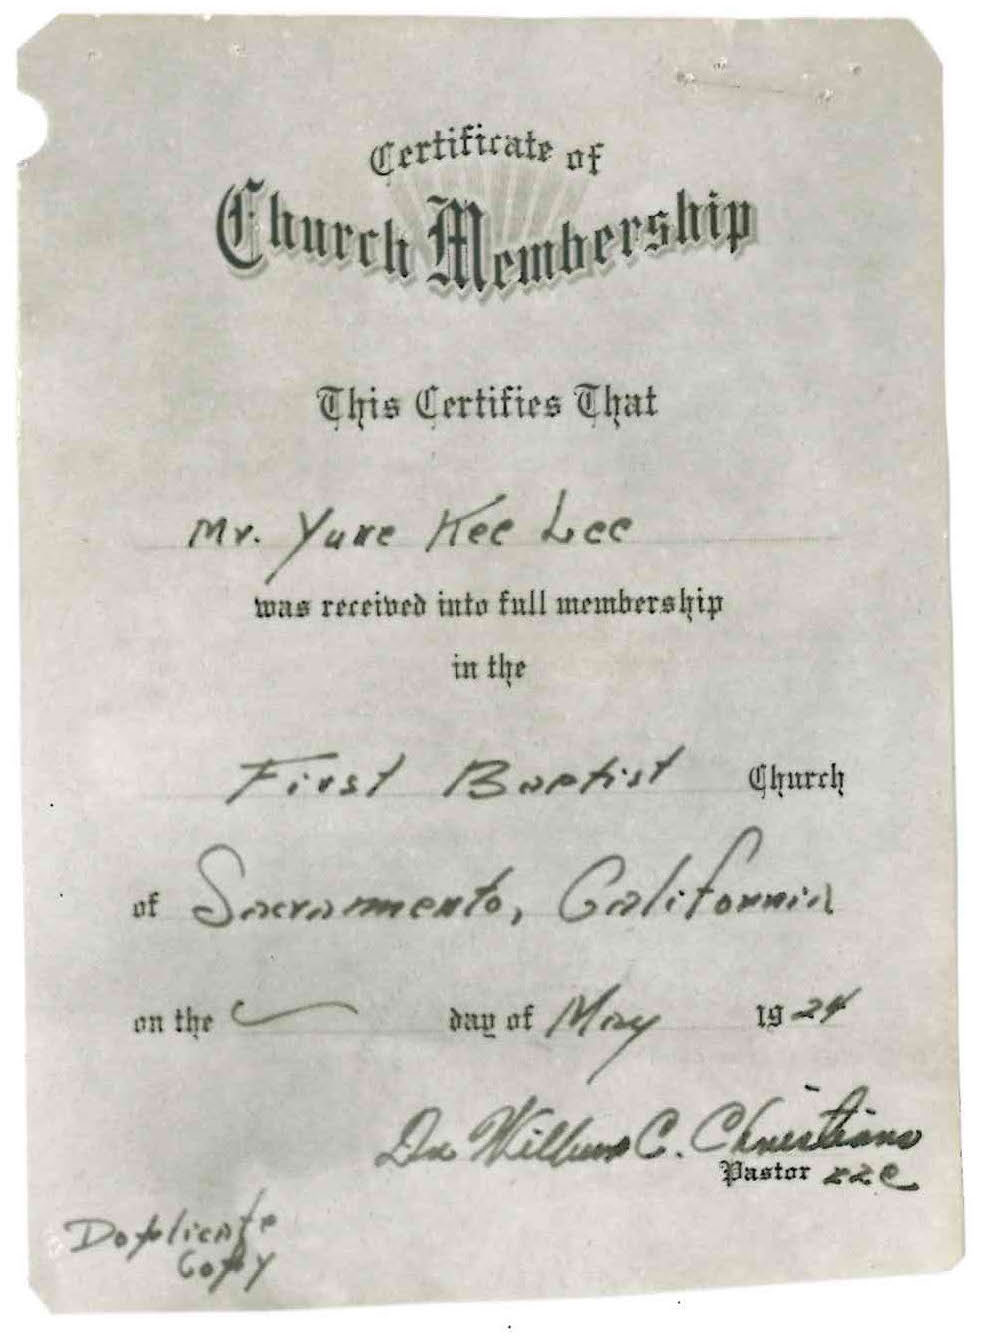 Certificate of
Church Membership
This Certifies That
Mr. Yune Kee Lee
was received into full membership
in the
First Baptist Church
of Sacramento, California
on the day of May 1924
Dr. Wilbur C. Christians
Pastor
Duplicate
Copy